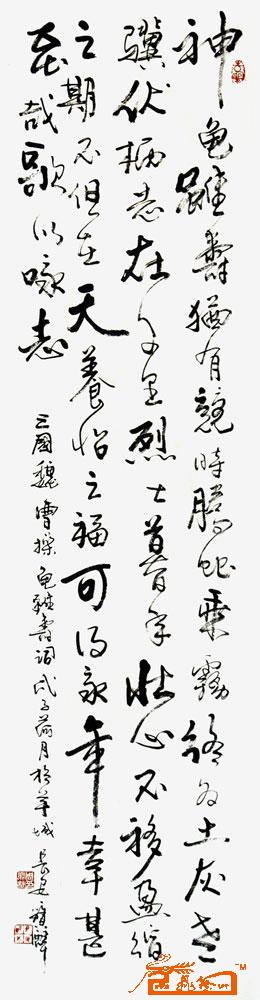 神龜雖壽猶有競時騰蛇乘霧終為土灰老
驥伏櫪志在千里烈士暮年壯心不移盈縮
之期不但在天養怡之福可得永年幸甚
至哉歌以咏志
三國魏曹操龜雖壽詞戊子荷月於羊城長安